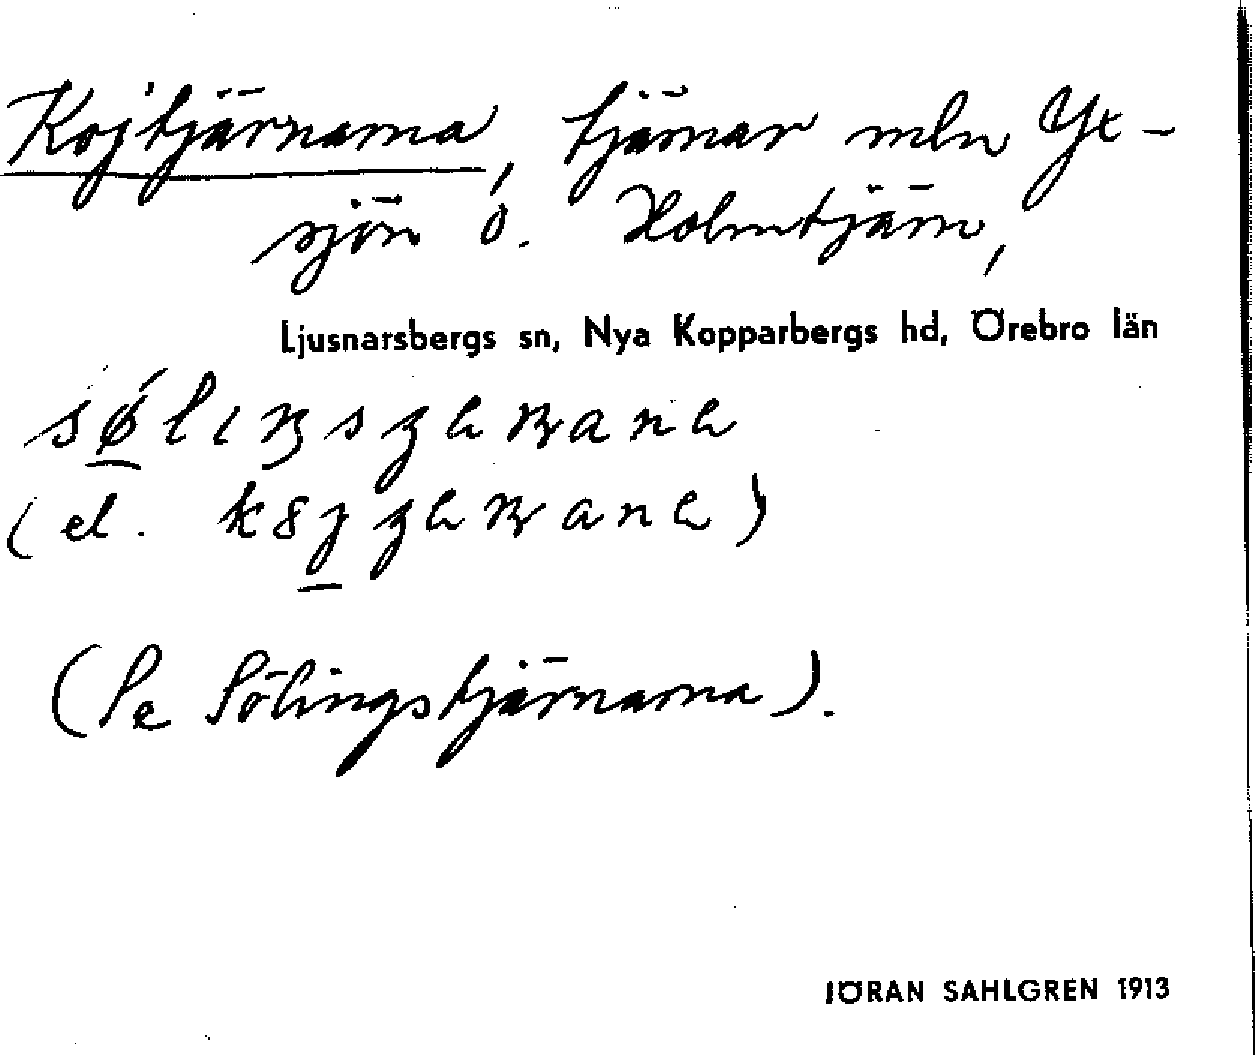 Kojtjärnarna, tjärnar mln Yt-
sjön o. Holmtjärn,
Ljusnarsbergs sn, Nya Kopparbergs hd, Örebro län
(el.
(Se Sölingstjärnarna).
JÖRAN SAHLGREN 1913